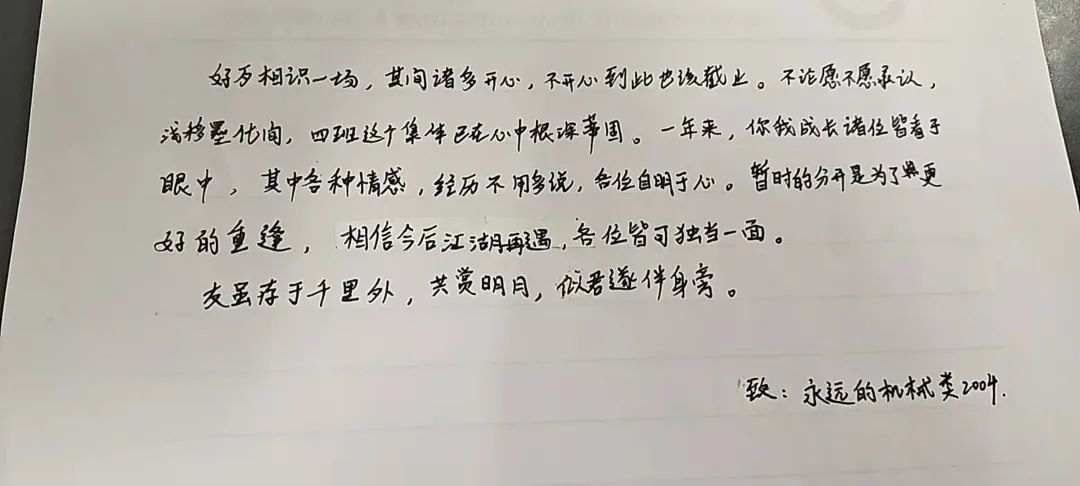 好歹相识一场，其间诸多开心，不开心到此也该截止。不论愿不愿承认，
浅移墨化间，四班这个集体已在心中根深蒂固。一年来，你我成长诸位皆看于
眼中，其中各种情感，经历不用多说，各位自明于心。暂时的分开是为了更
好的重逢，相信今后江湖再遇，各位皆可独当一面。
友虽存于千里外，共赏明月，似君遂伴身旁。
致：永远的机械类2004.